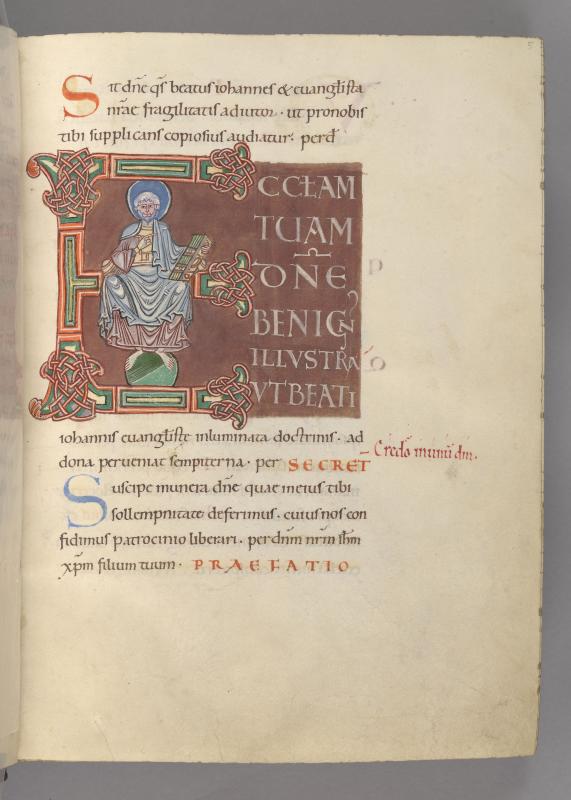 Sit dn̄e qs̄ beatus iohannes & euangłista
nr̄ae fragilitatis adiutor · ut pro nobis
tibi supplicans copiosius audiatur · per dn̄
ECCŁAM
TUAM
DN̄E
BENIGN
ILLVSTRA
VT BEATI
iohannis euangliste inluminata doctrinis · ad
dona perueniat sempiterna · per SECRET
Credo in unū dm̄.
Suscipe munera dn̄e quae in eius tibi
sollempnitate deferimus · cuius nos con
fidimus patrocinio liberari · per dnm̄ nrm̄ ihm̄
xp̄m filium tuum · PRAEFATIO